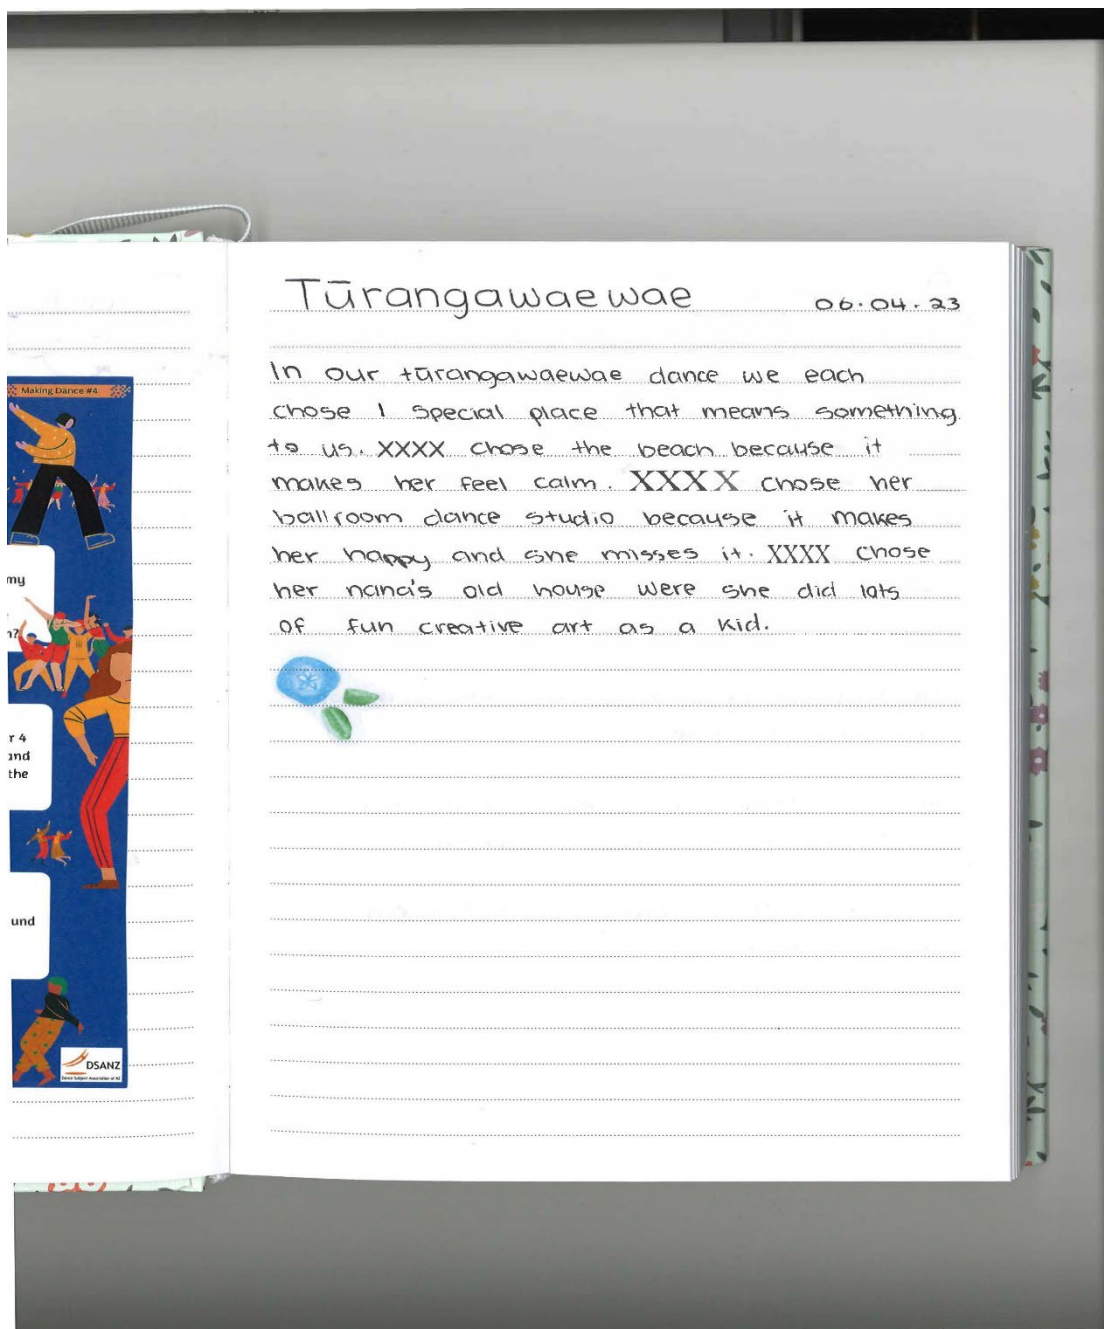 Making Dance #4
my
n?
r 4
and
the
und
DSANZ
Dance Subject Association of NZ
Tūrangawaewae 06.04.23
In our tūrangawaewae dance we each
chose 1 special place that means something
to us. XXXX chose the beach because it
makes her feel calm. XXXX chose her
ballroom dance studio because it makes
her happy and she misses it. XXXX chose
her nana's old house were she did lots
of fun creative art as a kid.